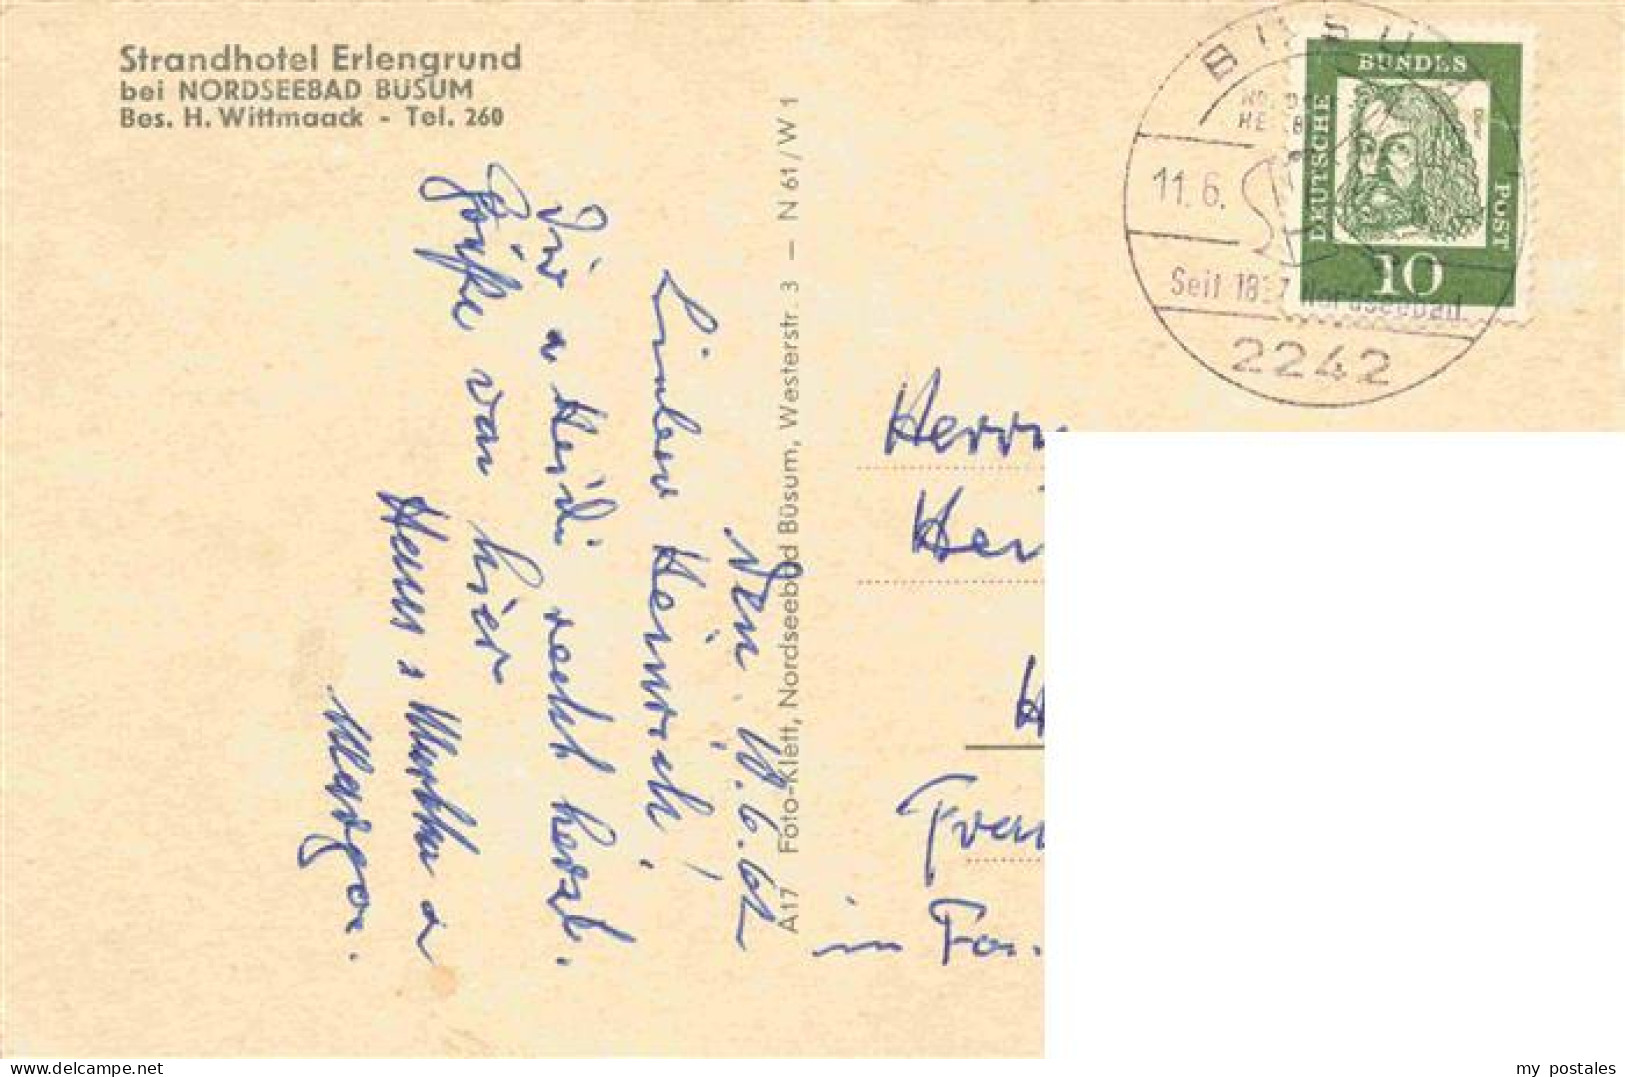 Strandhotel Erlengrund
bei NORDSEEBAD BÜSUM
Bes. H. Wittmaack - Tel. 260
A17 Foto-Klett, Nordseebad Büsum, Westerstr. 3 — N 61/W 1
Den 10.6.62
Lieber Heinrich!
Dir u Heidi recht herzl.
Grüße von hier
Hans, Martha u
Marga.
BÜSU
11.6.
Seit 1837 Nordseebad
2242
DEUTSCHE
BUNDES
POST
Dürer
10
Herrn
Hei
H
Fran
in Fa.
my postales
www.delcampe.net